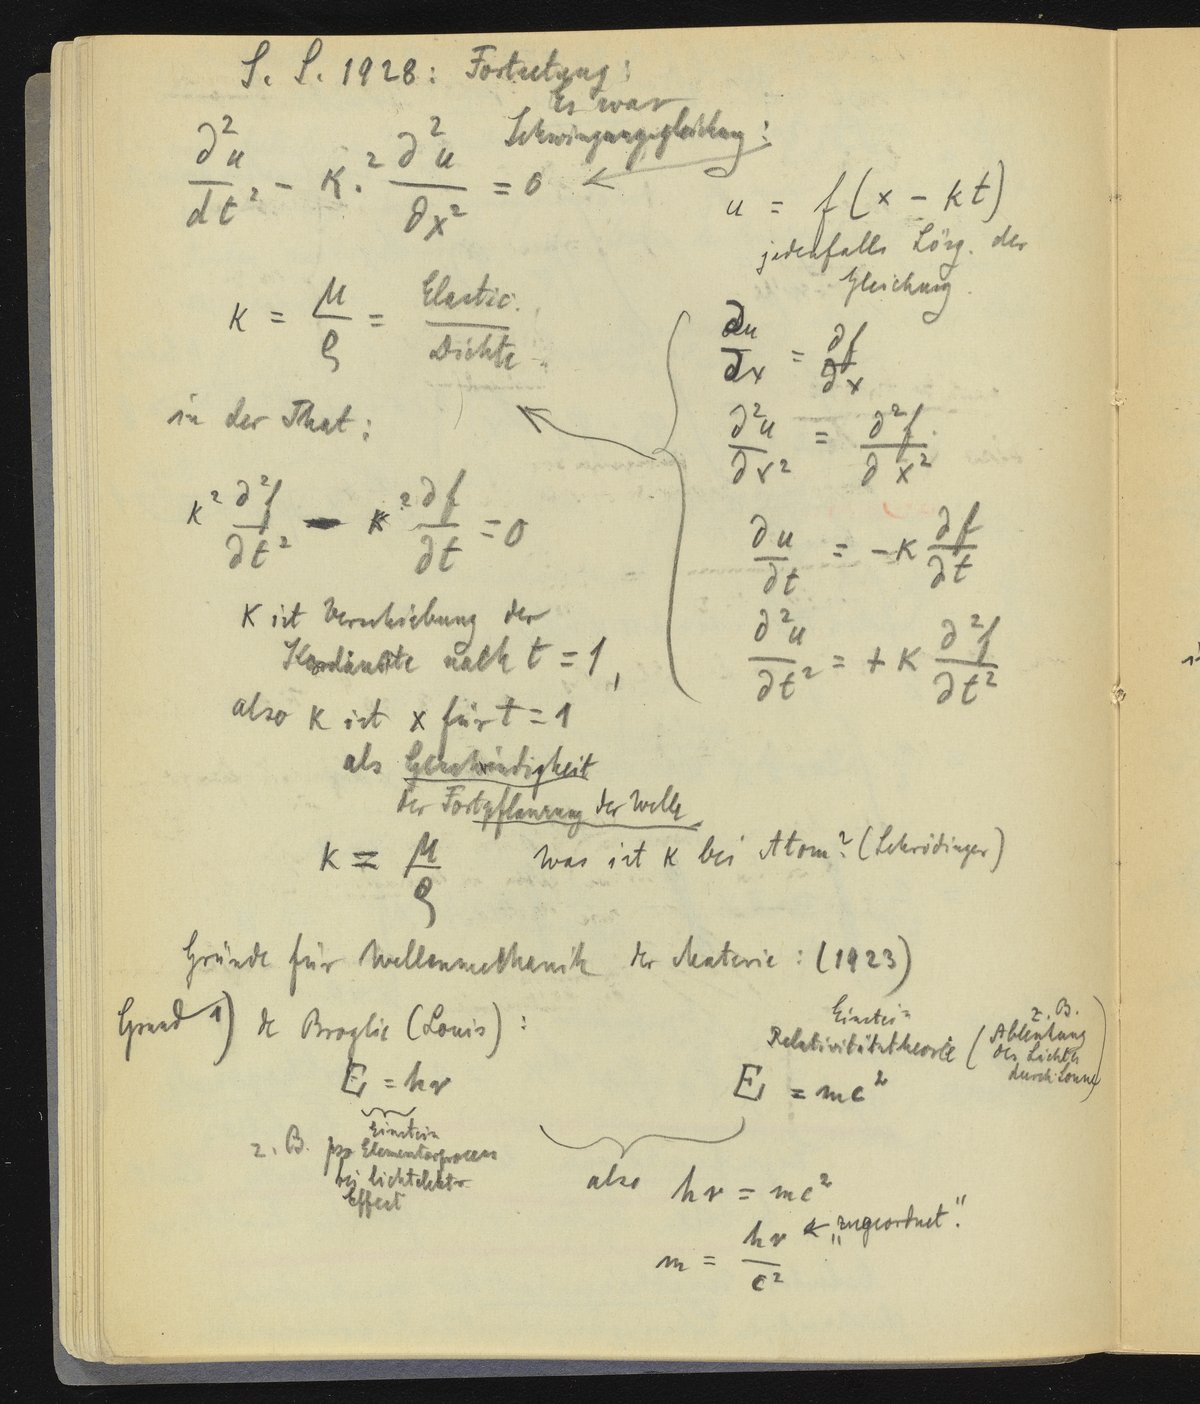 S. S. 1928: Fortsetzung:
Es war
Schwingungsgleichung:
∂²u/dt² - K.² ∂²u/∂x² = 0
u = f(x - kt)
jedenfalls Lösg. der
Gleichung.
K = μ/ρ = Elastic./Dichte
∂u/∂x = ∂f/∂x
∂²u/∂x² = ∂²f/∂x²
∂u/∂t = -K ∂f/∂t
∂²u/∂t² = + K ∂²f/∂t²
in der That:
K² ∂²f/∂t² - K² ∂f/∂t = 0
K ist Verschiebung der
nach t = 1,
also K ist x für t = 1
als Geschwindigkeit
der Fortpflanzung der Welle.
K = μ/ρ
Was ist K bei Atom? (Schrödinger)
Gründe für Wellenmechanik der Materie: (1923)
Grund 1) de Broglie (Louis):
E = hν
Einstein
z. B. pro Elementarprocess
bei lichtelektr.
Effect
Einstein
Relativitätstheorie
(z. B.
Ablenkung
des Lichts
durch Sonne)
E = mc²
also hν = mc²
m = hν/c² ← „zugeordnet".